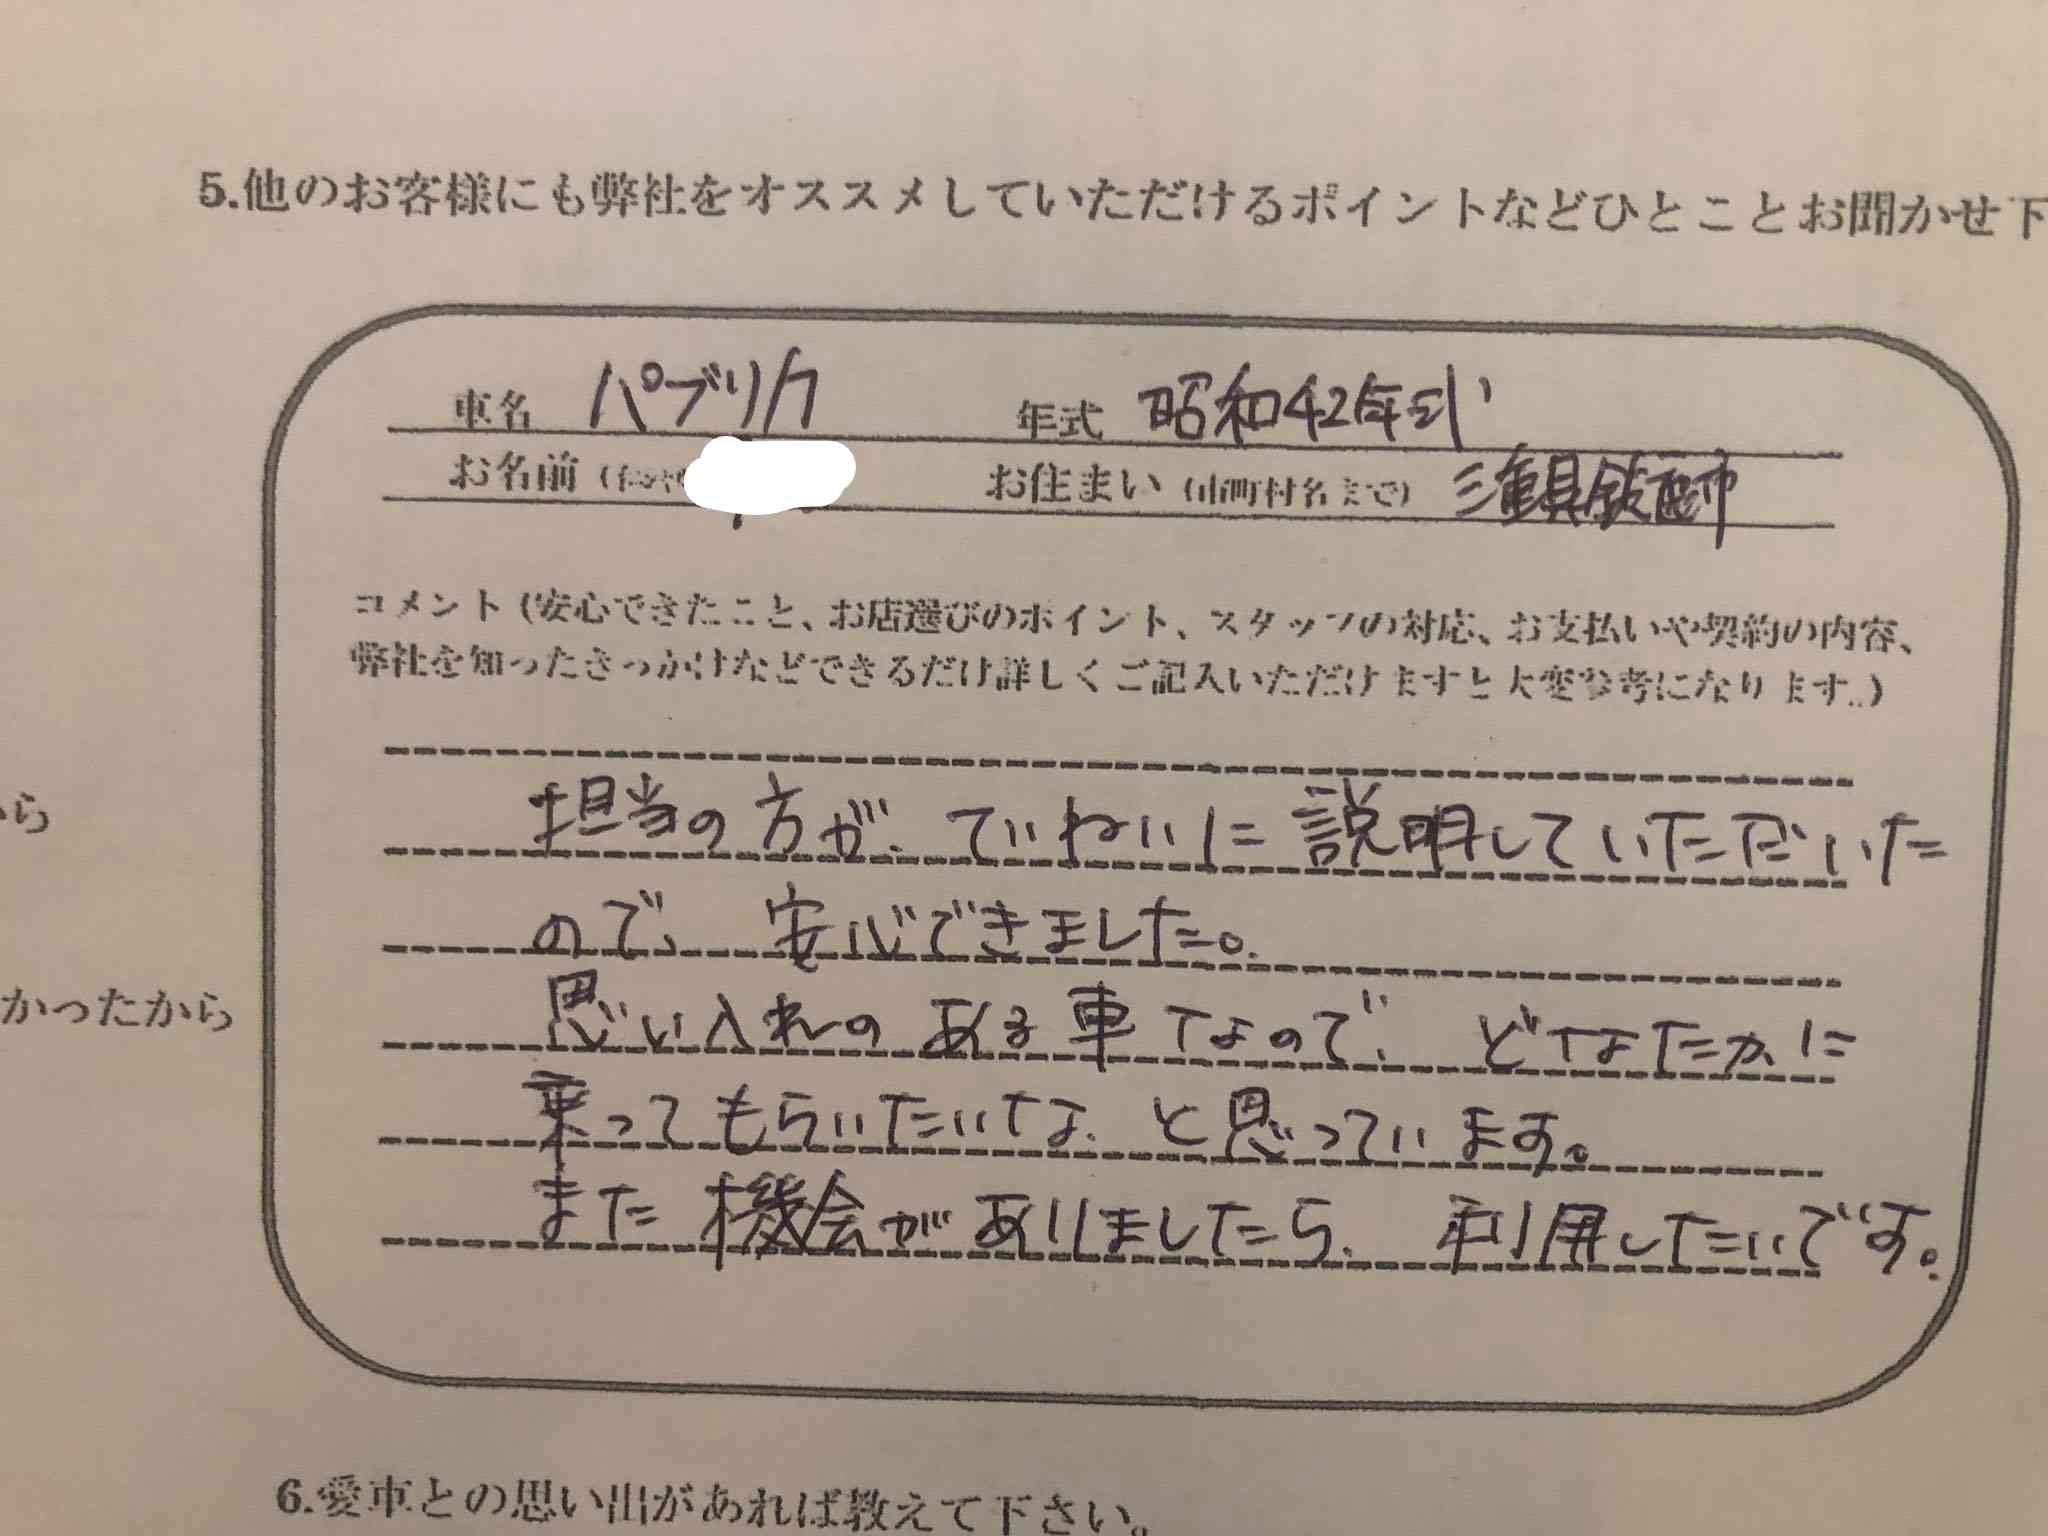 5.他のお客様にも弊社をオススメしていただけるポイントなどひとことお聞かせ下
車名 パブリカ 年式 昭和42年式
お名前 お住まい (市町村名まで) 三重県鈴鹿市
コメント (安心できたこと、お店選びのポイント、スタッフの対応、お支払いや契約の内容、
弊社を知ったきっかけなどできるだけ詳しくご記入いただけますと大変参考になります。)
担当の方が、ていねいに説明していただいた
ので、安心できました。
思い入れのある車なので、どなたかに
乗ってもらいたいな、と思っています。
また機会がありましたら、利用したいです。
から
かったから
6.愛車との思い出があれば教えて下さい。